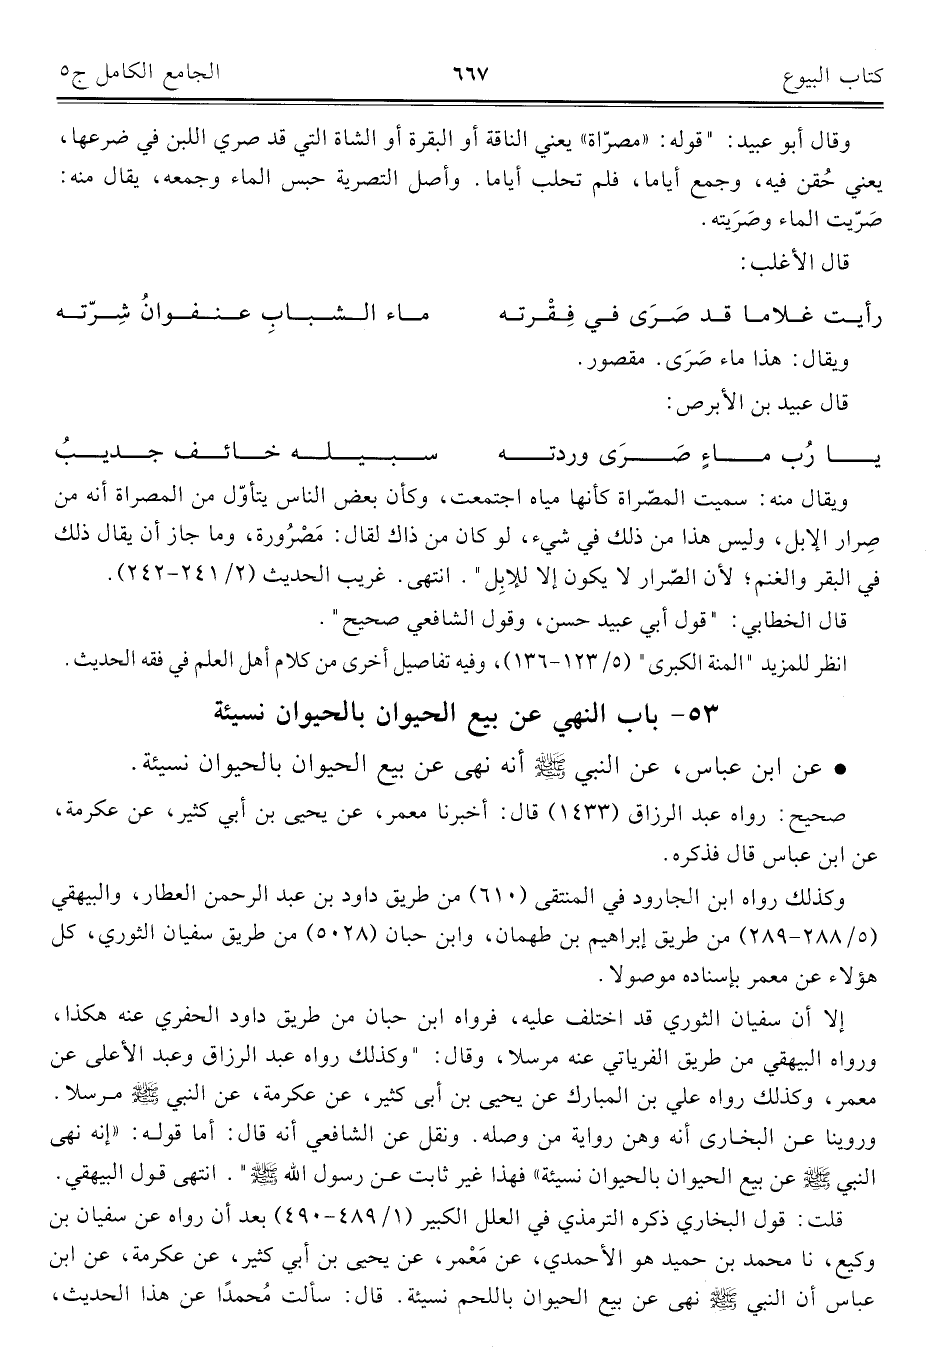 كتاب البيوع ٦٦٧ الجامع الكامل ج٥
وقال أبو عبيد: "قوله: «مصرّاة» يعني الناقة أو البقرة أو الشاة التي قد صري اللبن في ضرعها،
يعني حُقن فيه، وجمع أياما، فلم تحلب أياما. وأصل التصرية حبس الماء وجمعه، يقال منه:
صَرّيت الماء وصَرَيته.
قال الأغلب:
رأيت غلاما قد صَرَى في فِقْرته ماء الشبابِ عنفوانُ شِرّته
ويقال: هذا ماء صَرَى. مقصور.
قال عبيد بن الأبرص:
يا رُب ماءٍ صَرَى وردته سبيله خائف جديبُ
ويقال منه: سميت المصّراة كأنها مياه اجتمعت، وكأن بعض الناس يتأوّل من المصراة أنه من
صِرار الإبل، وليس هذا من ذلك في شيء، لو كان من ذاك لقال: مَصْرُورة، وما جاز أن يقال ذلك
في البقر والغنم؛ لأن الصّرار لا يكون إلا للإبِل". انتهى. غريب الحديث (٢/ ٢٤١-٢٤٢).
قال الخطابي: "قول أبي عبيد حسن، وقول الشافعي صحيح".
انظر للمزيد "المنة الكبرى" (٥/ ١٢٣-١٣٦)، وفيه تفاصيل أخرى من كلام أهل العلم في فقه الحديث.
٥٣- باب النهي عن بيع الحيوان بالحيوان نسيئة
• عن ابن عباس، عن النبي ﷺ أنه نهى عن بيع الحيوان بالحيوان نسيئة.
صحيح: رواه عبد الرزاق (١٤٣٣) قال: أخبرنا معمر، عن يحيى بن أبي كثير، عن عكرمة،
عن ابن عباس قال فذكره.
وكذلك رواه ابن الجارود في المنتقى (٦١٠) من طريق داود بن عبد الرحمن العطار، والبيهقي
(٥/ ٢٨٨-٢٨٩) من طريق إبراهيم بن طهمان، وابن حبان (٥٠٢٨) من طريق سفيان الثوري، كل
هؤلاء عن معمر بإسناده موصولا.
إلا أن سفيان الثوري قد اختلف عليه، فرواه ابن حبان من طريق داود الحفري عنه هكذا،
ورواه البيهقي من طريق الفرياتي عنه مرسلا، وقال: "وكذلك رواه عبد الرزاق وعبد الأعلى عن
معمر، وكذلك رواه علي بن المبارك عن يحيى بن أبى كثير، عن عكرمة، عن النبي ﷺ مرسلا.
وروينا عن البخارى أنه وهن رواية من وصله. ونقل عن الشافعي أنه قال: أما قوله: «إنه نهى
النبي ﷺ عن بيع الحيوان بالحيوان نسيئة» فهذا غير ثابت عن رسول الله ﷺ". انتهى قول البيهقي.
قلت: قول البخاري ذكره الترمذي في العلل الكبير (١/ ٤٨٩-٤٩٠) بعد أن رواه عن سفيان بن
وكيع، نا محمد بن حميد هو الأحمدي، عن مَعْمر، عن يحيى بن أبي كثير، عن عكرمة، عن ابن
عباس أن النبي ﷺ نهى عن بيع الحيوان باللحم نسيئة. قال: سألت مُحمدًا عن هذا الحديث،